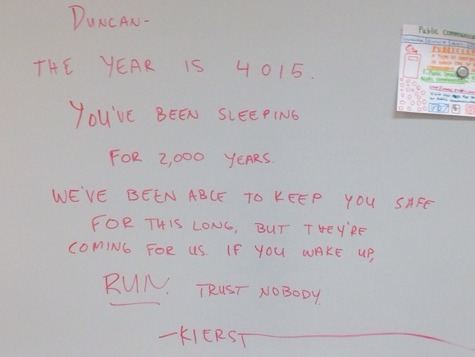 DUNCAN-
THE YEAR IS 4015.
YOU'VE BEEN SLEEPING
FOR 2,000 YEARS.
WE'VE BEEN ABLE TO KEEP YOU SAFE
FOR THIS LONG, BUT THEY'RE
COMING FOR US. IF YOU WAKE UP,
RUN. TRUST NOBODY.
-KIERST
Public Communication